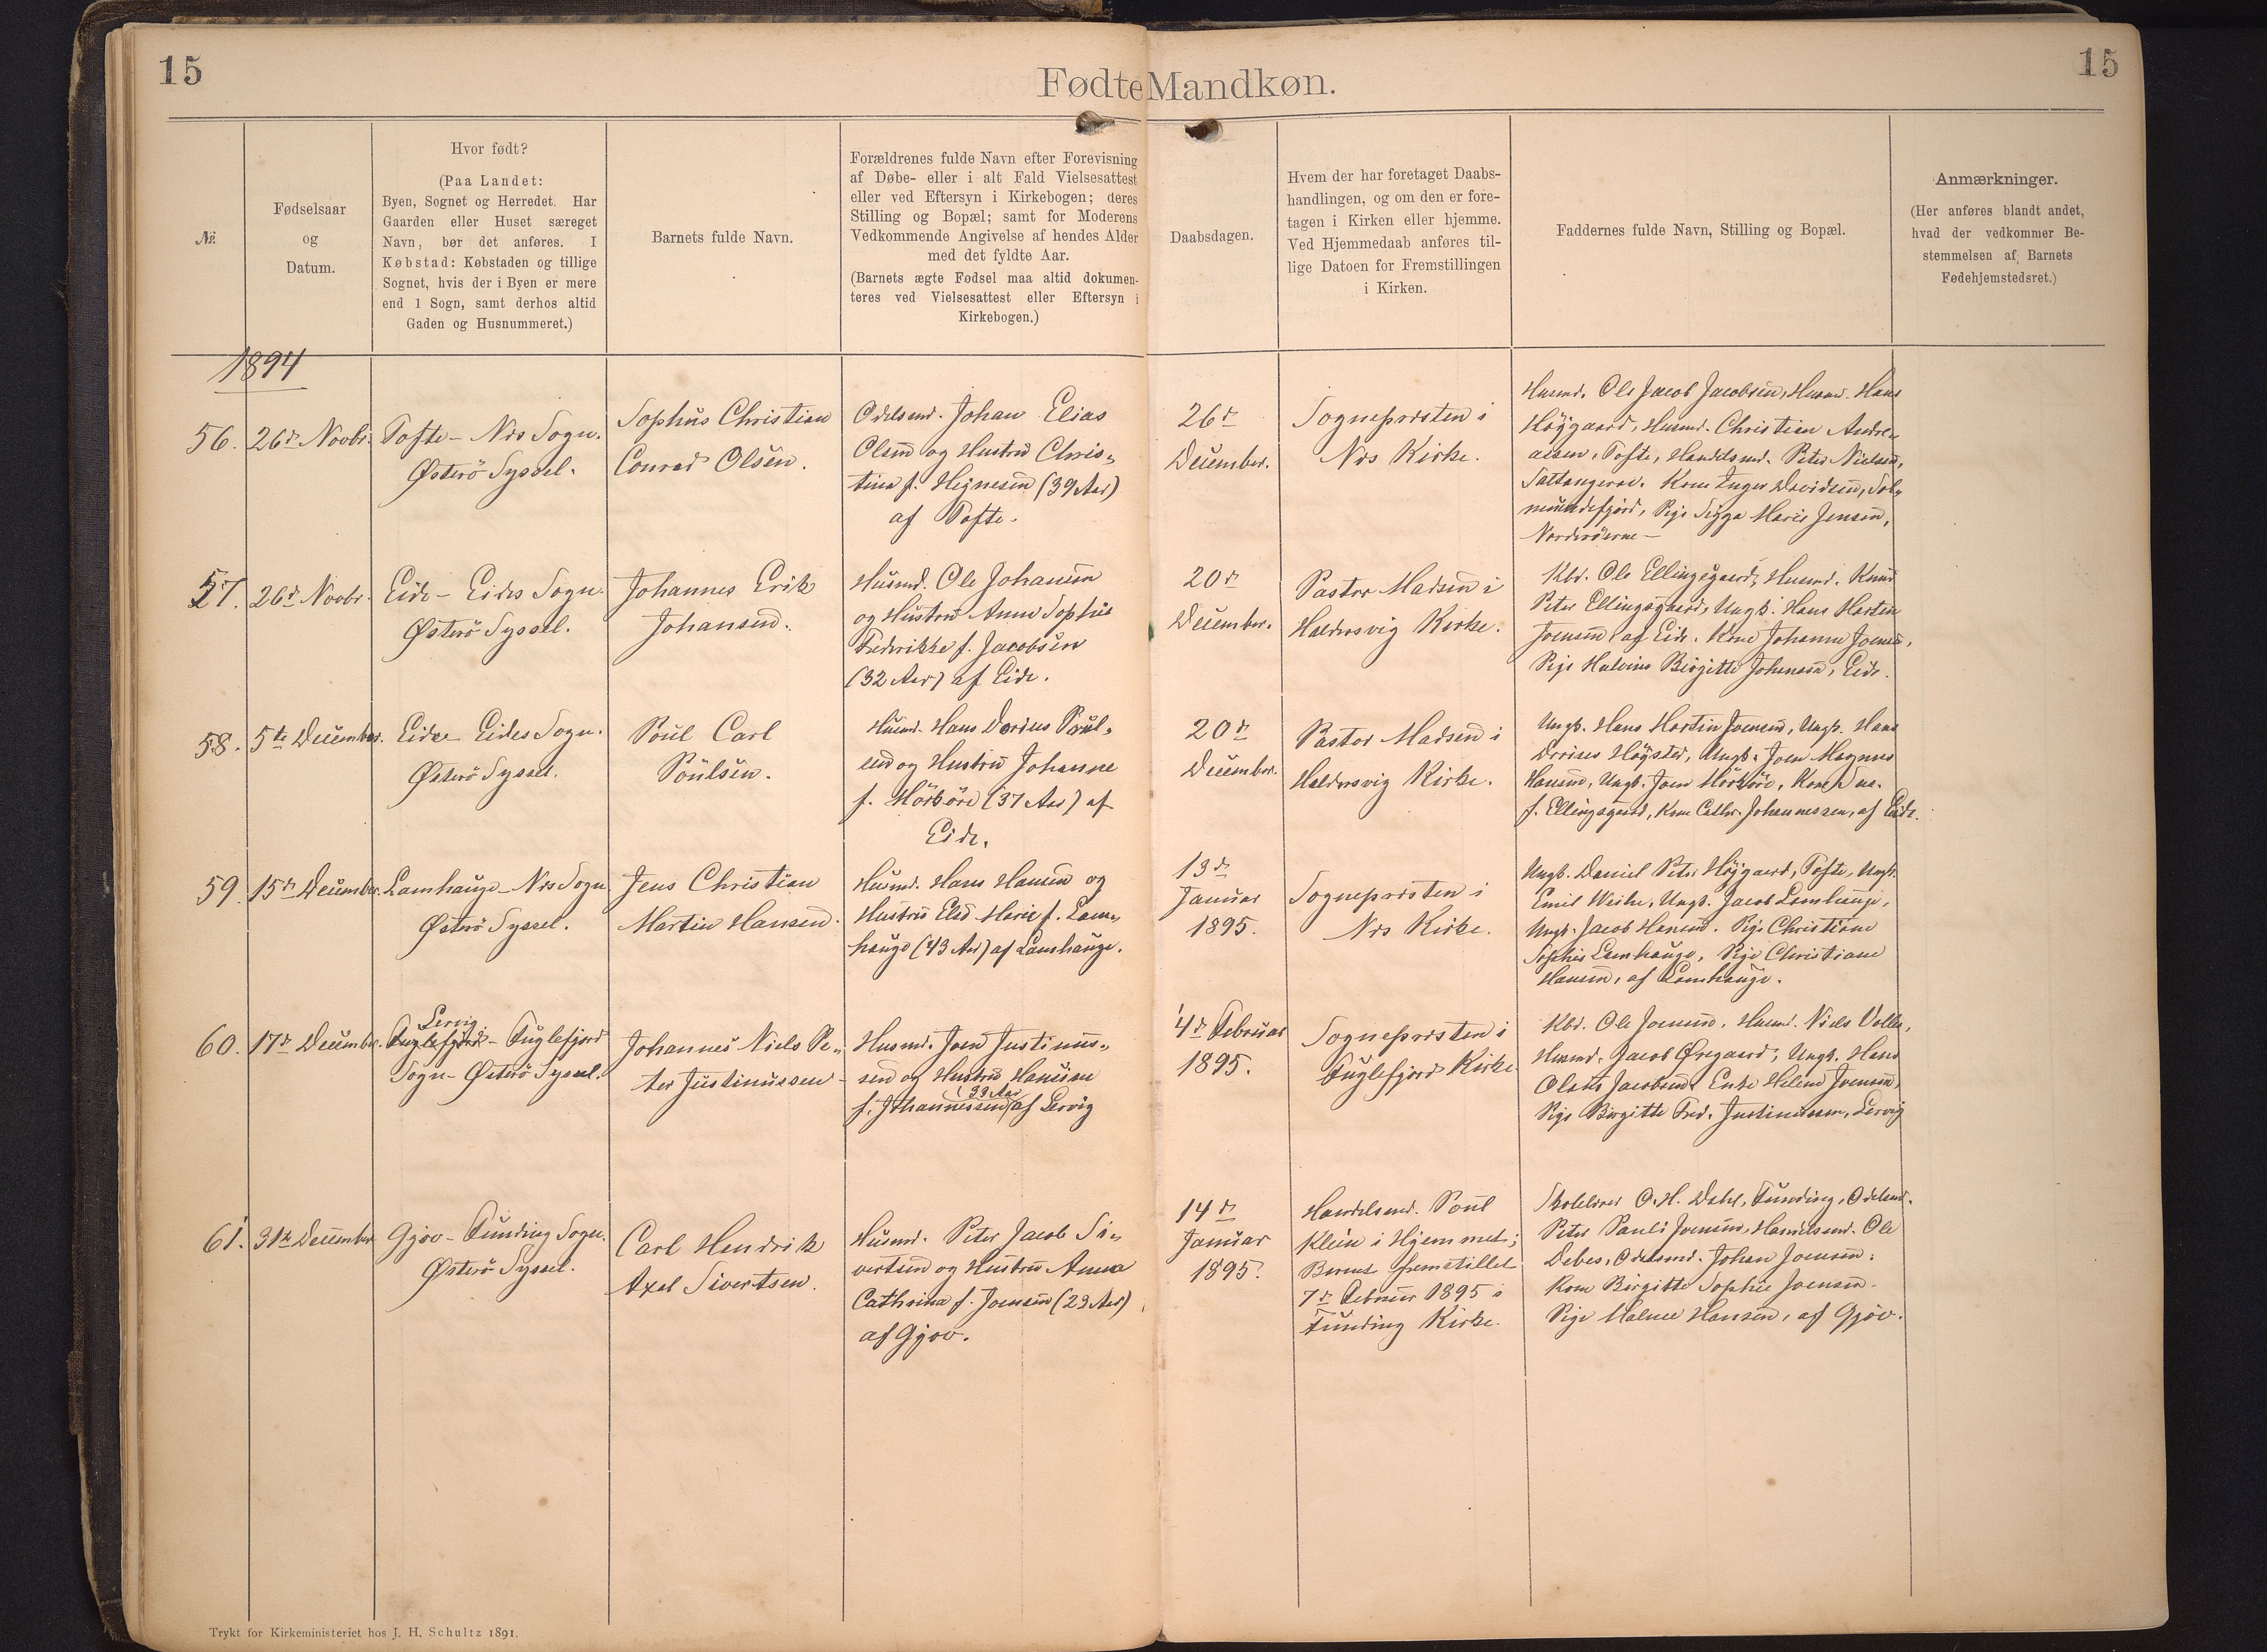 15
15
Fødte Mandkøn.
№.
Fødselsaar
og
Datum.
Hvor født?
(Paa Landet:
Byen, Sognet og Herredet. Har
Gaarden eller Huset særeget
Navn, bør det anføres. I
Købstad: Købstaden og tillige
Sognet, hvis der i Byen er mere
end 1 Sogn, samt derhos altid
Gaden og Husnummeret.)
Barnets fulde Navn.
Forældrenes fulde Navn efter Forevisning
af Døbe- eller i alt Fald Vielsesattest
eller ved Eftersyn i Kirkebogen; deres
Stilling og Bopæl; samt for Moderens
Vedkommende Angivelse af hendes Alder
med det fyldte Aar.
(Barnets ægte Fødsel maa altid dokumen-
teres ved Vielsesattest eller Eftersyn i
Kirkebogen.)
Daabsdagen.
Hvem der har foretaget Daabs-
handlingen, og om den er fore-
tagen i Kirken eller hjemme.
Ved Hjemmedaab anføres til-
lige Datoen for Fremstillingen
i Kirken.
Faddernes fulde Navn, Stilling og Bopæl.
Anmærkninger.
(Her anføres blandt andet,
hvad der vedkommer Be-
stemmelsen af Barnets
Fødehjemstedsret.)
1894
56.
26de Novbr.
Tofte - Næs Sogn.
Østerö Syssel.
Sophus Christian
Conrad Olsen.
Odelsmd. Johan Elias
Olsen og Hustru Chris-
tina f. Hejnesen (39 Aar)
af Tofte.
26de
December.
Sognepræsten i
Næs Kirke.
Husmd. Ole Jacob Jacobsen, Husmd. Hans
Höjgaard, Husmd. Christian Andre-
asen, Tofte, Handelsmd. Peter Nielsen,
Saltangeraa. Kone Inger Davidsen, Sol-
mundefjord, Pige Sigga Marie Jensen,
Norderöerne -
57.
26de Novbr.
Eide - Eides Sogn.
Østerö Syssel.
Johannes Erik
Johansen.
Husmd. Ole Johansen
og Hustru Anne Sophie
Frederikke f. Jacobsen
(32 Aar) af Eide.
20de
December.
Pastor Madsen i
Haldersvig Kirke.
Kbd. Ole Ellingsgaard, Husmd. Knud
Peter Ellingsgaard, Ungk. Hans Martin
Joensen af Eide. Kone Johanne Joensen,
Pige Malvine Birgitte Johansen, Eide.
58.
5te December.
Eide - Eides Sogn.
Østerö Syssel.
Poul Carl
Poulsen.
Husmd. Hans Dorius Poul-
sen og Hustru Johanne
f. Mörköre (37 Aar) af
Eide.
20de
December.
Pastor Madsen i
Haldersvig Kirke.
Ungk. Hans Martin Joensen, Ungk. Hans
Dorius Höjsted, Ungk. Joen Magnus
Hansen, Ungk. Joen Mörköre, Kone
f. Ellingsgaard, Kone Cathr. Johannessen, af Eide.
59.
15de December.
Lamhauge - Næs Sogn
Østerö Syssel.
Jens Christian
Martin Hansen.
Husmd. Hans Hansen og
Hustru Else Marie f. Lam-
hauge (43 Aar) af Lamhauge.
13de
Januar
1895.
Sognepræsten i
Næs Kirke.
Ungk. Daniel Peter Höjgaard, Tofte, Ungk.
Emil Weihe, Ungk. Jacob Lamhauge,
Ungk. Jacob Hansen. Pige Christiane
Sophie Lamhauge, Pige Christiane
Hansen, af Lamhauge.
60.
17de December.
Lervig
Fuglefjord - Fuglefjord
Sogn - Østerö Syssel.
Johannes Niels Pe-
ter Justinussen
Husmd. Joen Justinus-
sen og Hustru Hansine
f. Johannessen (33 Aar) af Lervig
4de Februar
1895.
Sognepræsten i
Fuglefjord Kirke
Kbd. Ole Joensen. Husmd. Niels Volles,
Husmd. Jacob Øregaard, Ungk. Hans
Olaus Jacobsen. Enke Helene Joensen,
Pige Birgitte Fred. Justinussen, Lervig
61.
31te December
Gjov - Funding Sogn.
Østerö Syssel.
Carl Hendrik
Axel Sivertsen.
Husmd. Peter Jacob Si-
vertsen og Hustru Anna
Cathrina f. Joensen (29 Aar)
af Gjov.
14de
Januar
1895.
Handelsmd. Poul
Klein i Hjemmet;
Barnet fremstillet
7de Februar 1895 i
Funding Kirke.
Skolelærer O. H. Dahl, Funding, Odelsmd.
Peter Pauli Joensen, Handelsmd. Ole
Debes, Odelsmd. Johan Joensen.
Kone Birgitte Sophie Joensen.
Pige Malene Hansen, af Gjov.
Trykt for Kirkeministeriet hos J. H. Schultz 1891.